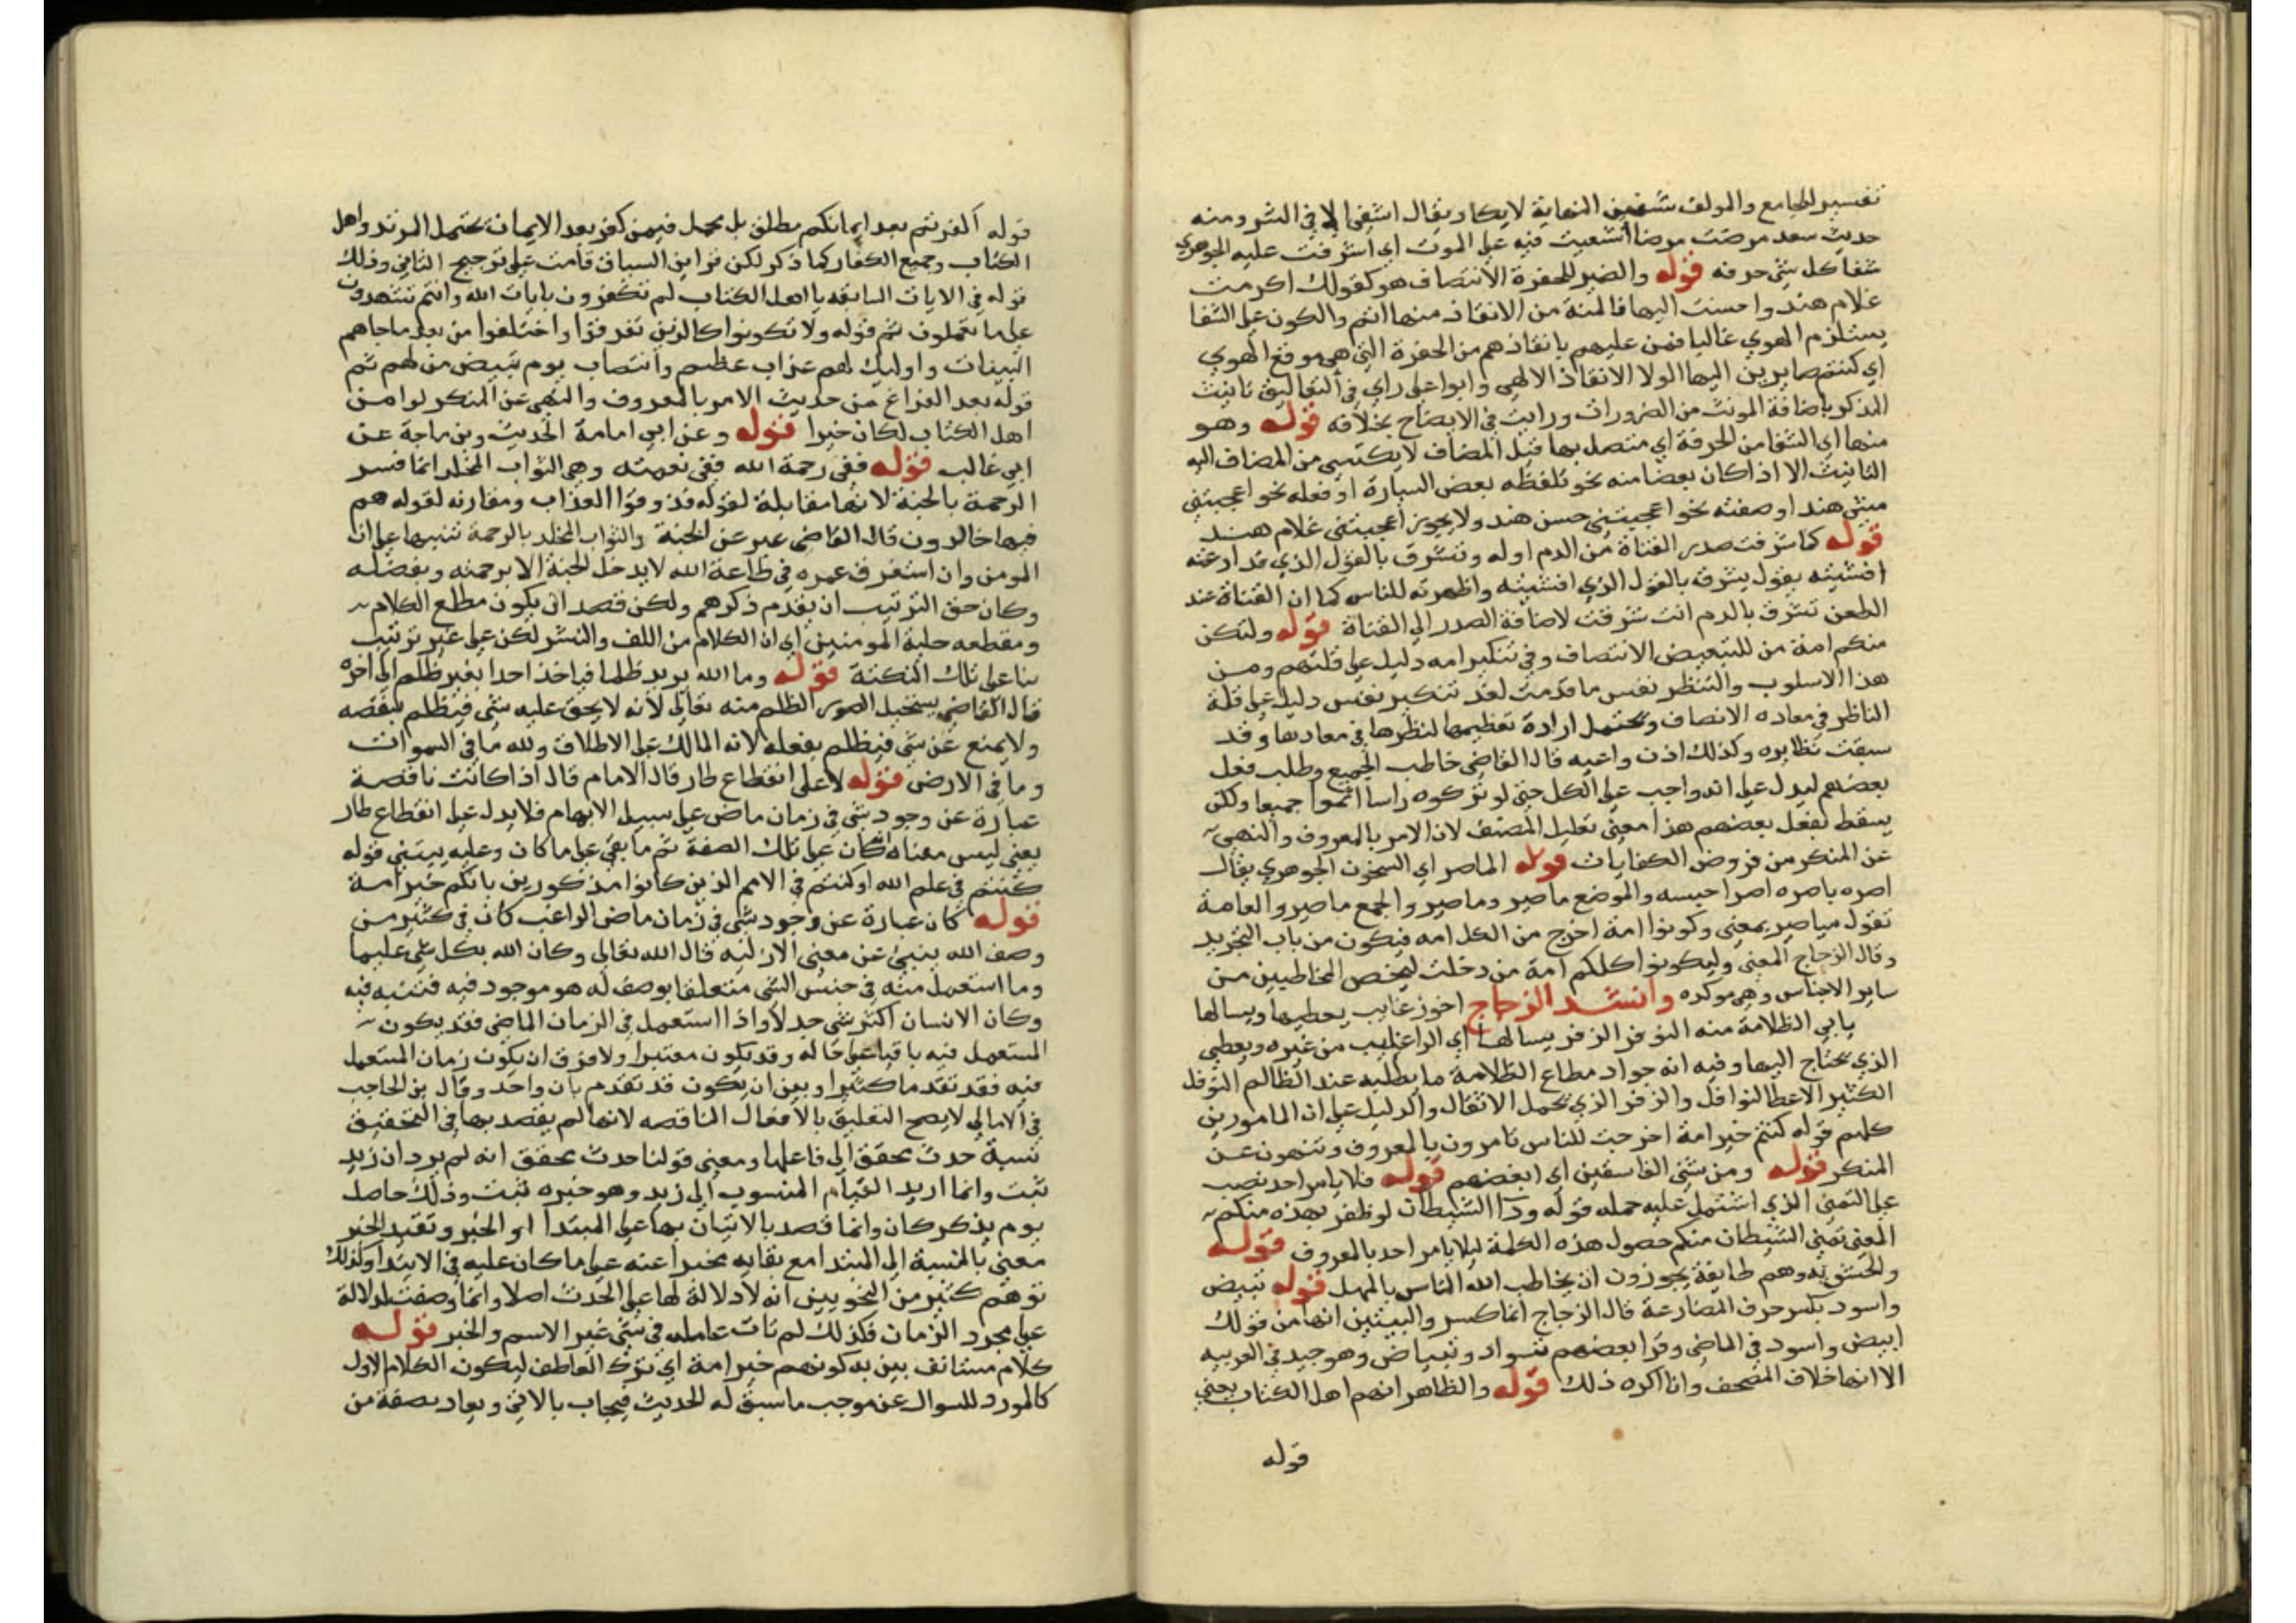 تفسير الجامع والمولف شفتين النهاية لا يكاد يقال اشفى الا في الشر ومنه
حديث سعد مرضت مرضا اشفيت فيه على الموت اي اشرفت عليه الجوهري
شفا كل شي حرفه قوله والضمير للحفرة الانتصاف هو كقولك اكرمت
غلام هند واحسنت اليها فالمنة من الانقاذ منها اتم والكون على الشفا
يستلزم الهوي غالبا فمن عليهم بانقاذهم من الحفرة التي هي موقع الهوي
اي كنتم صايرين اليها لولا الانقاذ الالهي وابوا علي راي في التعاليق تانيث
المذكر باضافة المونث من الضرورات ورايت في الايضاح بخلافه قوله وهو
منها اي الشفا من الحرفة اي متصل بها قيل المضاف لا يكتسي من المضاف اليه
التانيث الا اذا كان بعضا منه نحو تلفظه بعض السيارة او فعله نحو اعجبتني
مشي هند او صفته نحو اعجبتني حسن هند ولا يجوز اعجبتني غلام هند
قوله كما شرقت صدر القناة من الدم اوله وتشرق بالقول الذي قد اذعته
افشيته يقول يشرق بالقول الذي افشيته واظهرته للناس كما ان القناة عند
الطعن تشرق بالدم انت شرقت لاضافة الصدر الى القناة قوله ولتكن
منكم امة من للتبعيض الانتصاف وفي تنكير امه دليل على قلتهم ومن
هذا الاسلوب والتنظر نفس ما قدمت لغد تنكير نفس دليل على قلة
الناظر في معاده الانصاف ويحتمل ارادة تعظيمها لنظرها في معادها وقد
سبقت نظايره وكذلك اذن واعيه قال القاضي خاطب الجميع وطلب فعل
بعضهم ليدل على انه واجب على الكل حتى لو تركوه راسا اثموا جميعا ولكن
يسقط بفعل بعضهم هذا معنى تعليل المصنف لان الامر بالمعروف والنهي
عن المنكر من فروض الكفايات قوله الماصر اي السجون الجوهري يقال
اصره ياصره اصرا حبسه والموضع ماصر وماصر والجمع ماصر والعامة
تقول مياصر بمعنى وكونوا امة اخرج من الكل امه فيكون من باب التجريد
وقال الزجاج المعنى وليكونوا كلكم امة من دخلت ليخص المخاطبين من
ساير الاجناس وهي موكده وانشد الزجاج اخو رغايب يعطيها ويسالها
يابي الظلامة منه النوفل الزفر يسالها اي الرغايب من غيره ويعطي
الذي يحتاج اليها وفيه انه جواد مطاع الظلامة ما يطلبه عند الظالم النوفل
الكثير الاعطا لنوافل والزفر الذي يحمل الاثقال والدليل على ان المامورين
كلهم قوله كنتم خير امة اخرجت للناس تامرون بالمعروف وتنهون عن
المنكر قوله ومن شنى الفاسقين اي ابغضهم قوله فلا يامر احد نصب
على التمني الذي اشتمل عليه جمله قوله ود الشيطان لو ظفر بهذه منكم
المعنى تمنى الشيطان منكم حصول هذه الكلمة ليلا يامر احد بالمعروف قوله
والحشويه وهم طايفة يجوزون ان يخاطب الله الناس بالمهمل قوله تبيض
واسود بكسر حرف المضارعة قال الزجاج انما كسر والبيتين انها من قولك
ابيض واسود في الماضي وقرا بعضهم تسواد وتبياض وهو جيد في العربيه
الا انها خلاف المصحف وانا اكره ذلك قوله والظاهر انهم اهل الكتاب يعني
قوله
قوله اكفرتم بعد ايمانكم مطلق بل مجمل فيمن كفر بعد الايمان يحتمل المرتد واهل
الكتاب وجميع الكفار كما ذكر لكن قراين السياق قامت على ترجيح الثاني وذلك
قوله في الايات السابقه يا اهل الكتاب لم تكفرون بايات الله وانتم تشهدون
على ما تعملون ثم قوله ولا تكونوا كالذين تفرقوا واختلفوا من بعد ما جاهم
البينات واوليك لهم عذاب عظيم وانتصاب يوم تبيض من لهم ثم
قوله بعد الفراغ من حديث الامر بالمعروف والنهي عن المنكر لو امن
اهل الكتاب لكان خيرا قوله وعن ابي امامة الحديث وبن ماجة عن
ابي غالب قوله ففي رحمة الله ففي نعمته وهي الثواب المخلد انما فسر
الرحمة بالجنة لانها مقابلة لقوله فذوقوا العذاب ومقارنه لقوله هم
فيها خالدون قال القاضي عبر عن الجنة والثواب المخلد بالرحمة تنبيها على ان
المومن وان استغرق عمره في طاعة الله لا يدخل الجنة الا برحمته وبفضله
وكان حق الترتيب ان يقدم ذكرهم ولكن قصد ان يكون مطلع الكلام
ومقطعه حلية المومنين اي ان الكلام من اللف والنشر لكن على غير ترتيب
بنا على تلك النكتة قوله وما الله يريد ظلما فياخذ احدا بغير ظلم الى اخره
قال القاضي يستحيل الظلم منه تعالى لانه لا يحق عليه شي فيظلم بنقصه
ولا يمنع عن شي فيظلم بفعله لانه المالك على الاطلاق ولله ما في السموات
وما في الارض قوله لا على انقطاع طار قال الامام قال اذا كانت ناقصة
عبارة عن وجود شي في زمان ماض على سبيل الابهام فلا يدل على انقطاع طار
يعني ليس معناه انه كان على تلك الصفة ثم ما بقي على ما كان وعليه يبتني قوله
كنتم في علم الله او كنتم في الامم الذين كانوا مذكورين بانكم خير امة
قوله كان عبارة عن وجود شي في زمان ماض الراغب كان في كثير من
وصف الله ينبئ عن معنى الازليه قال الله تعالى وكان الله بكل شي عليما
وما استعمل منه في جنس الشي متعلقا بوصف له هو موجود فيه فتنبه فيه
وكان الانسان اكثر شي جدلا واذا استعمل في الزمان الماضي فقد يكون
المستعمل فيه باقيا على حاله وقد يكون متغيرا ولا فرق ان يكون زمان المستعمل
فيه فقد تقدما كثيرا وبين ان يكون قد تقدم بان واحد وقال بن الحاجب
في الامالي لا يصح التعليق بالافعال الناقصه لانها لم يقصد بها في التحقيق
نسبة حدث محقق الى فاعلها ومعنى قولنا حدث محقق انه لم يرد ان زيد
ثبت وانما اريد القيام المنسوب الى زيد وهو خبره ثبت وذلك حاصل
يوم يذكر كان وانما قصد بالاتيان بها على المبتدا او الخبر وتقيد الخبر
معنى بالنسبة الى المبتدا مع بقايه مخبرا عنه على ما كان عليه في الابتدا وكذلك
توهم كثير من النحويين انه لا دلالة لها على الحدث اصلا وانما وضعت لدلالة
على مجرد الزمان فكذلك لم تات عامله في شي غير الاسم والخبر قوله
كلام مستانف بين به كونهم خير امة اي ترك العاطف ليكون الكلام الاول
كالمورد للسوال عن موجب ما سبق له الحديث فيجاب بالاتي ويعاد بصفة من